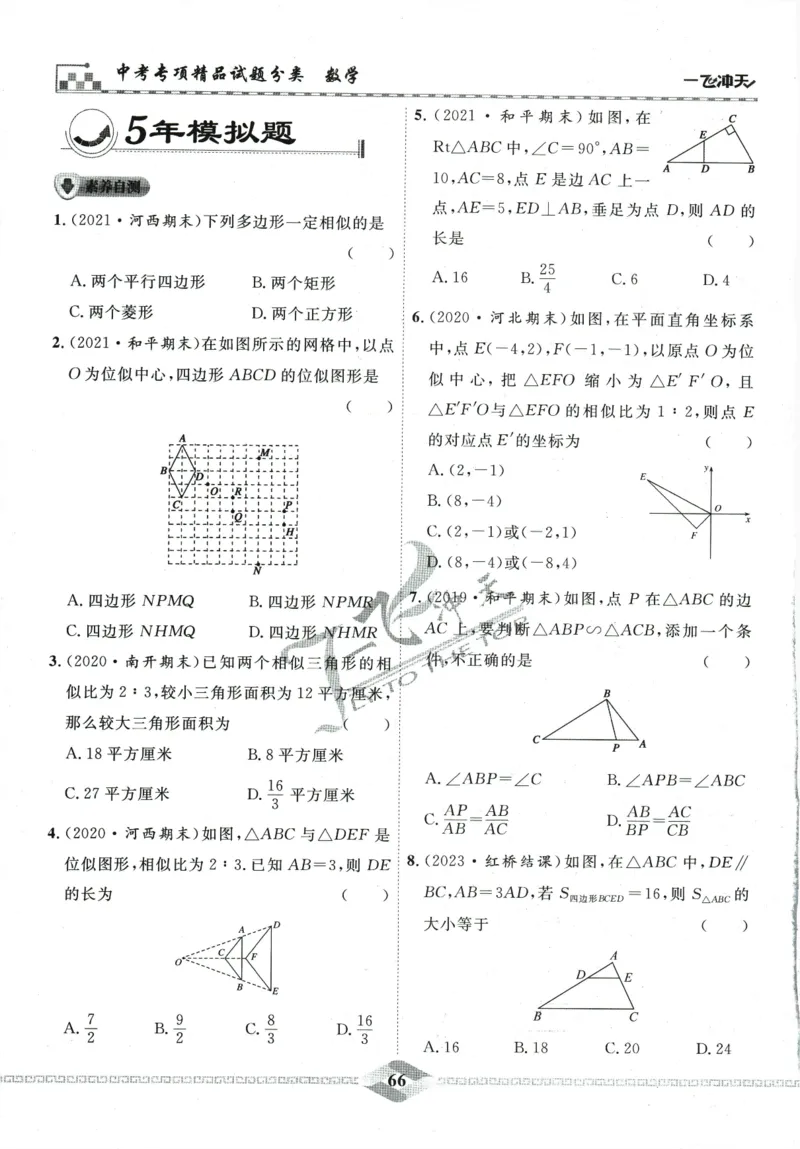 中考专项精品试题分类 数学
一飞冲天
5年模拟题
素养自测
1.(2021·河西期末)下列多边形一定相似的是
( )
A.两个平行四边形 B.两个矩形
C.两个菱形 D.两个正方形
2.(2021·和平期末)在如图所示的网格中,以点
O为位似中心,四边形 ABCD 的位似图形是
( )
A
B
D
C
O
R
Q
M
P
H
N
A.四边形 NPMQ B.四边形 NPMR
C.四边形 NHMQ D.四边形 NHMR
3.(2020·南开期末)已知两个相似三角形的相
似比为 2∶3,较小三角形面积为 12 平方厘米,
那么较大三角形面积为 ( )
A.18 平方厘米 B.8 平方厘米
C.27 平方厘米 D.16/3 平方厘米
4.(2020·河西期末)如图,△ABC 与△DEF 是
位似图形,相似比为 2∶3.已知 AB=3,则 DE
的长为 ( )
O
A
D
C
F
B
E
A.7/2 B.9/2 C.8/3 D.16/3
5.(2021·和平期末)如图,在
Rt△ABC 中,∠C=90°,AB=
10,AC=8,点 E 是边 AC 上一
点,AE=5,ED⊥AB,垂足为点 D,则 AD 的
长是 ( )
C
E
A D B
A.16 B.25/4 C.6 D.4
6.(2020·河北期末)如图,在平面直角坐标系
中,点 E(-4,2),F(-1,-1),以原点 O 为位
似中心,把 △EFO 缩小为 △E′F′O,且
△E′F′O与△EFO 的相似比为 1∶2,则点 E
的对应点 E′的坐标为 ( )
A.(2,-1)
B.(8,-4)
C.(2,-1)或(-2,1)
D.(8,-4)或(-8,4)
E
y
O
x
F
7.(2019·和平期末)如图,点 P 在△ABC 的边
AC 上,要判断△ABP∽△ACB,添加一个条
件,不正确的是 ( )
B
C P A
A.∠ABP=∠C B.∠APB=∠ABC
C.AP/AB=AB/AC D.AB/BP=AC/CB
8.(2023·红桥结课)如图,在△ABC 中,DE∥
BC,AB=3AD,若 S四边形BCED=16,则 S△ABC的
大小等于 ( )
A
D E
B C
A.16 B.18 C.20 D.24
66